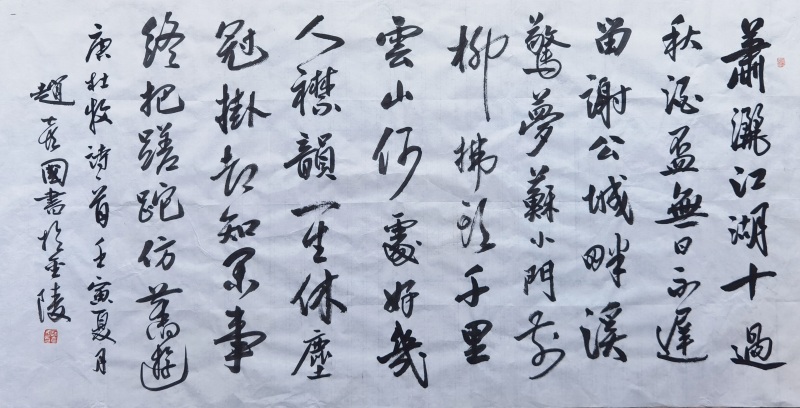 蕭灑江湖十過
秋酒盃無日不遲
留謝公城畔溪
驚夢蘇小門前
柳拂頭千里
雲山何處好幾
人襟韻一生休塵
冠掛卻知閑事
終把蹉跎訪舊遊
唐杜牧詩一首壬寅夏月
趙國書於金陵